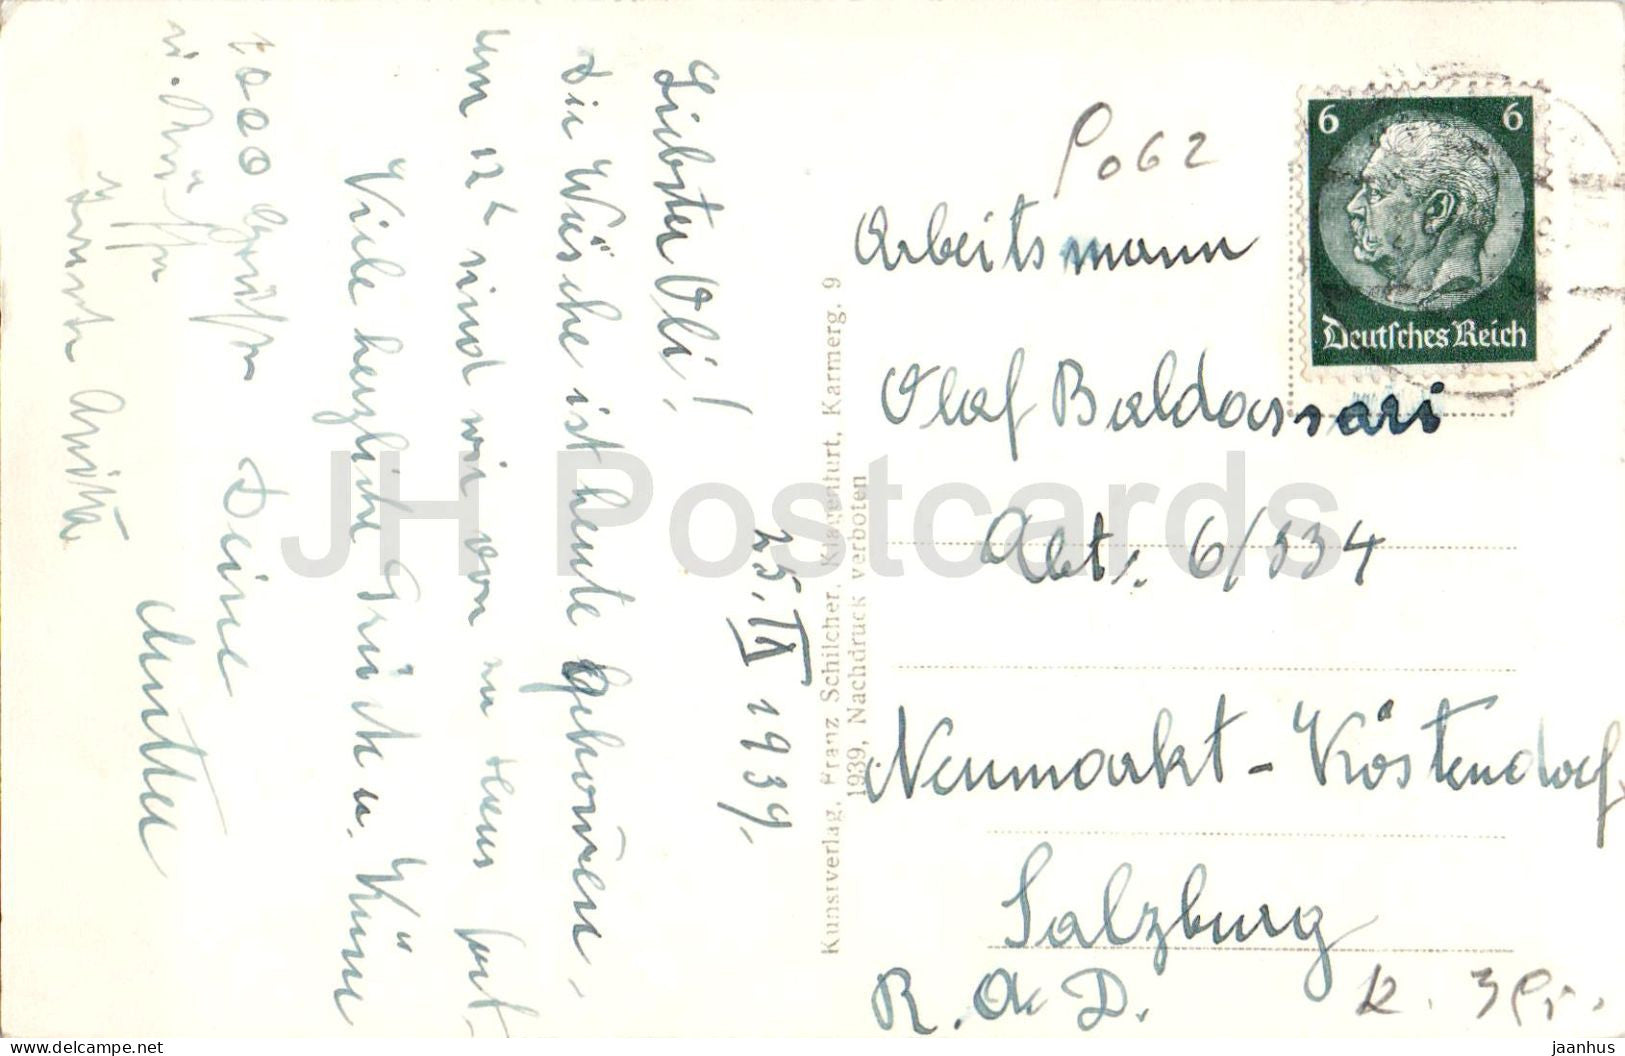 25. IX 1939.
Liebster Oli!
Die Wäsche ist heute gekommen,
um 12h sind wir von zu Haus fort.
Viele herzliche Grüße u. Küsse
1000 Grüße Deine
u. Küsse Mutter
Tante Anita
Kunstverlag, Franz Schilcher, Klagenfurt, Karmerg. 9
1939, Nachdruck verboten
6 6
Deutsches Reich
Po62
Arbeitsmann
Olaf Baldassari
Abt. 6/334
Neumarkt-Köstendorf
Salzburg
R. A. D.
JH Postcards
www.delcampe.net
jaanhus